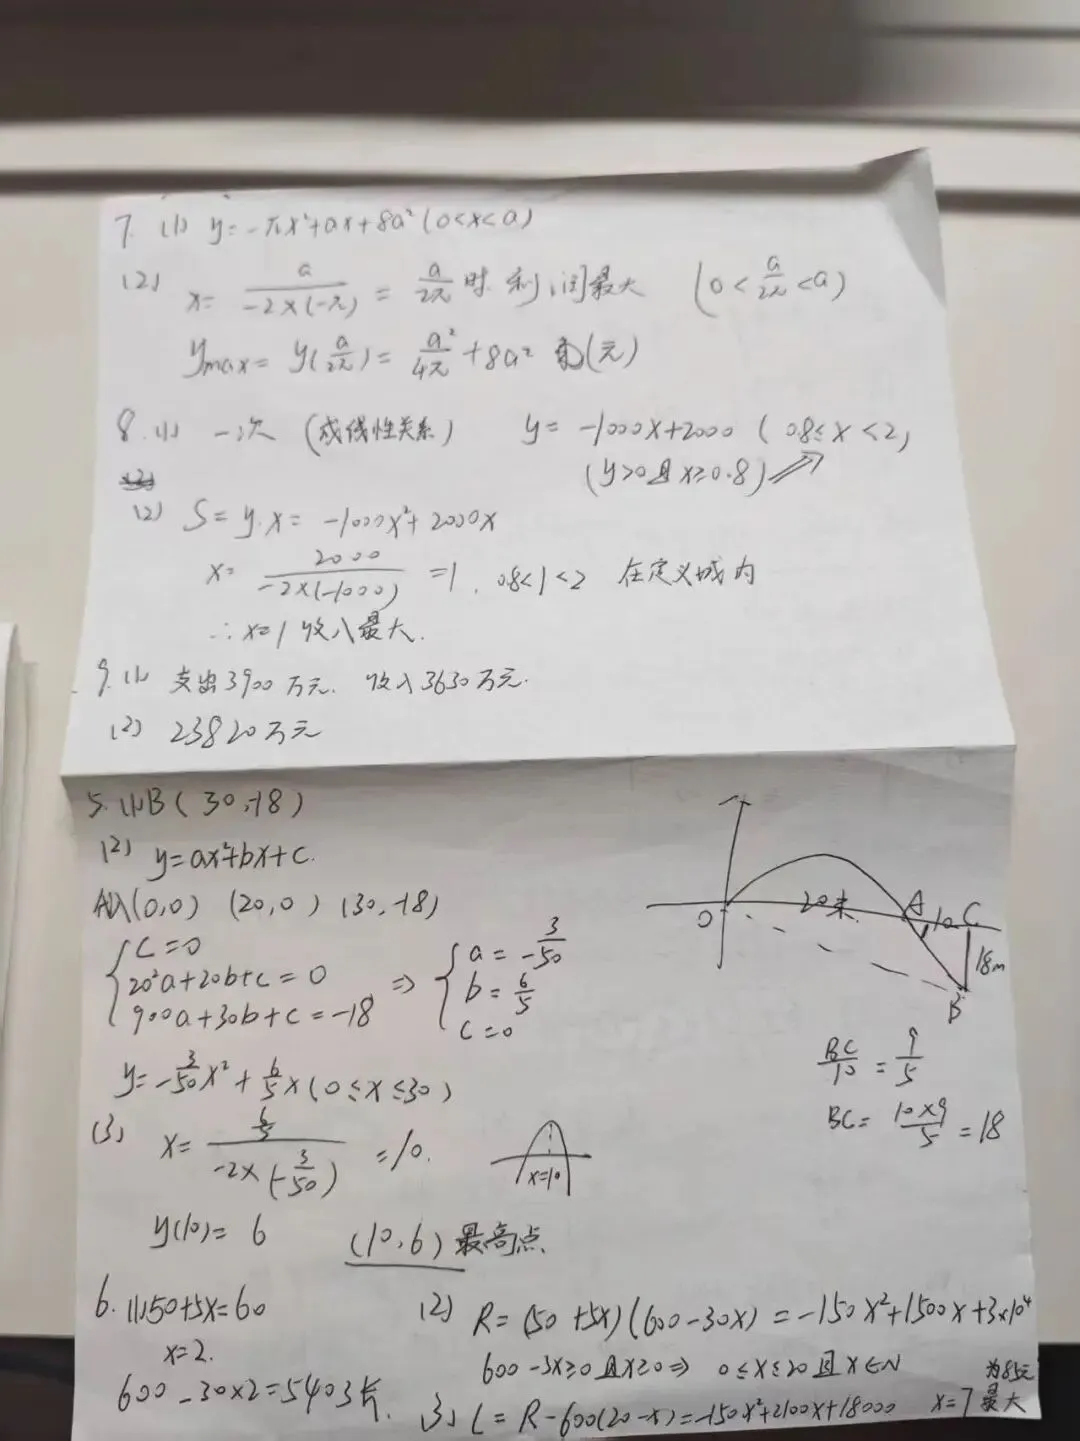 7. (1) y=-πx²+ax+8a² (0<x<a)
(2) x= a/(-2×(-π)) = a/2π 时 利润最大 (0<a/2π<a)
ymax= y(a/2π)= a²/4π +8a² (元)
8.(1) 一次 (成线性关系) y= -1000x+2000 (0.8≤x<2)
(y>0且x≥0.8)
(2) S=y·x= -1000x²+2000x
x= 2000/(-2×(-1000)) =1, 0.8<1<2 在定义域内
∴x=1 收入最大.
9.(1) 支出3900万元. 收入3630万元.
(2) 23820万元
5.(1)B(30,-18)
(2) y=ax²+bx+c.
代入(0,0) (20,0) (30,-18)
{c=0
20²a+20b+c=0
900a+30b+c=-18
⇒
{a=-3/50
b=6/5
c=0
y=-3/50x²+6/5x(0≤x≤30)
(3) x= 6/5/(-2×(-3/50)) =10.
x=10
y(10)= 6 (10,6)最高点.
O 20米 A 10 C
18m
B
BC/10 = 9/5
BC= 10×9/5 =18
6. (1)50+5x=60
x=2.
600-30×2=540 3长.
(2) R=(50+5x)(600-30x)=-150x²+1500x+3×10⁴
600-3x≥0且x≥0⇒ 0≤x≤20且x∈N
(3) L=R-600(20-x)=-150x²+2100x+18000 x=7最大
为85元